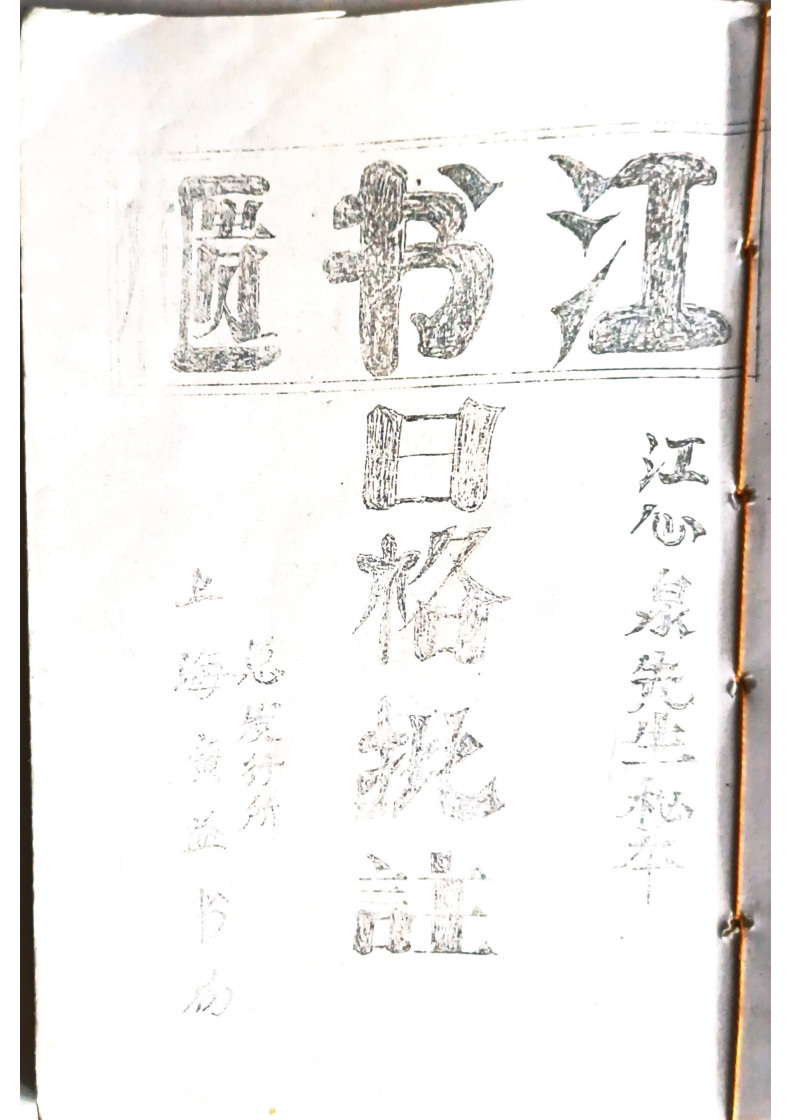 江书匮
江心泉先生秘本
日格批註
总发行所
上海廣益书局